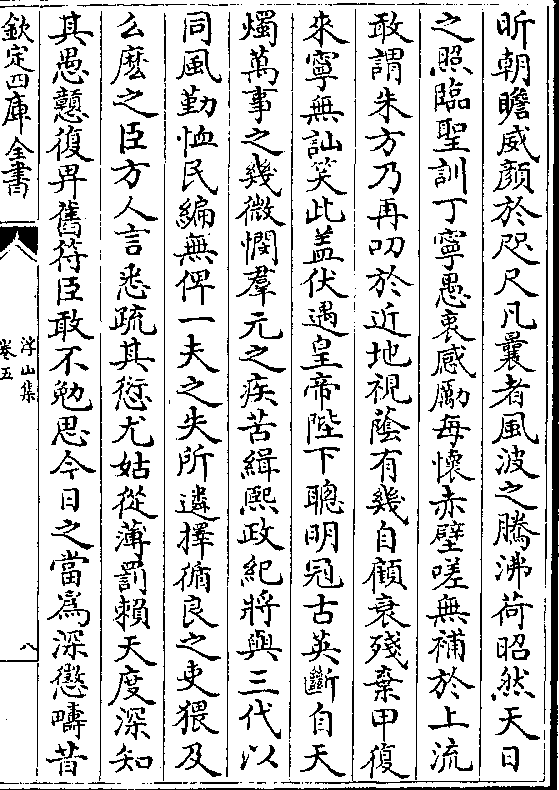 昕朝瞻威顔於咫尺凡曩者風波之騰沸荷昭然天日
之照臨聖訓丁寧愚衷感勵每懐赤壁嗟無補於上流
敢謂朱方乃再叨於近地視蔭有幾自顧衰殘棄甲復
來寧無訕笑此蓋伏遇皇帝陛下聰明冠古英斷自天
燭萬事之幾微憫羣元之疾苦緝熙政紀將與三代以
同風勤恤民編無俾一夫之失所遴擇循良之吏猥及
么麽之臣方人言悉疏其愆尤姑從薄罰賴天度深知
其愚戅復畀舊符臣敢不勉思今日之當為深懲疇昔
欽定四庫全書
浮山集
卷五
八